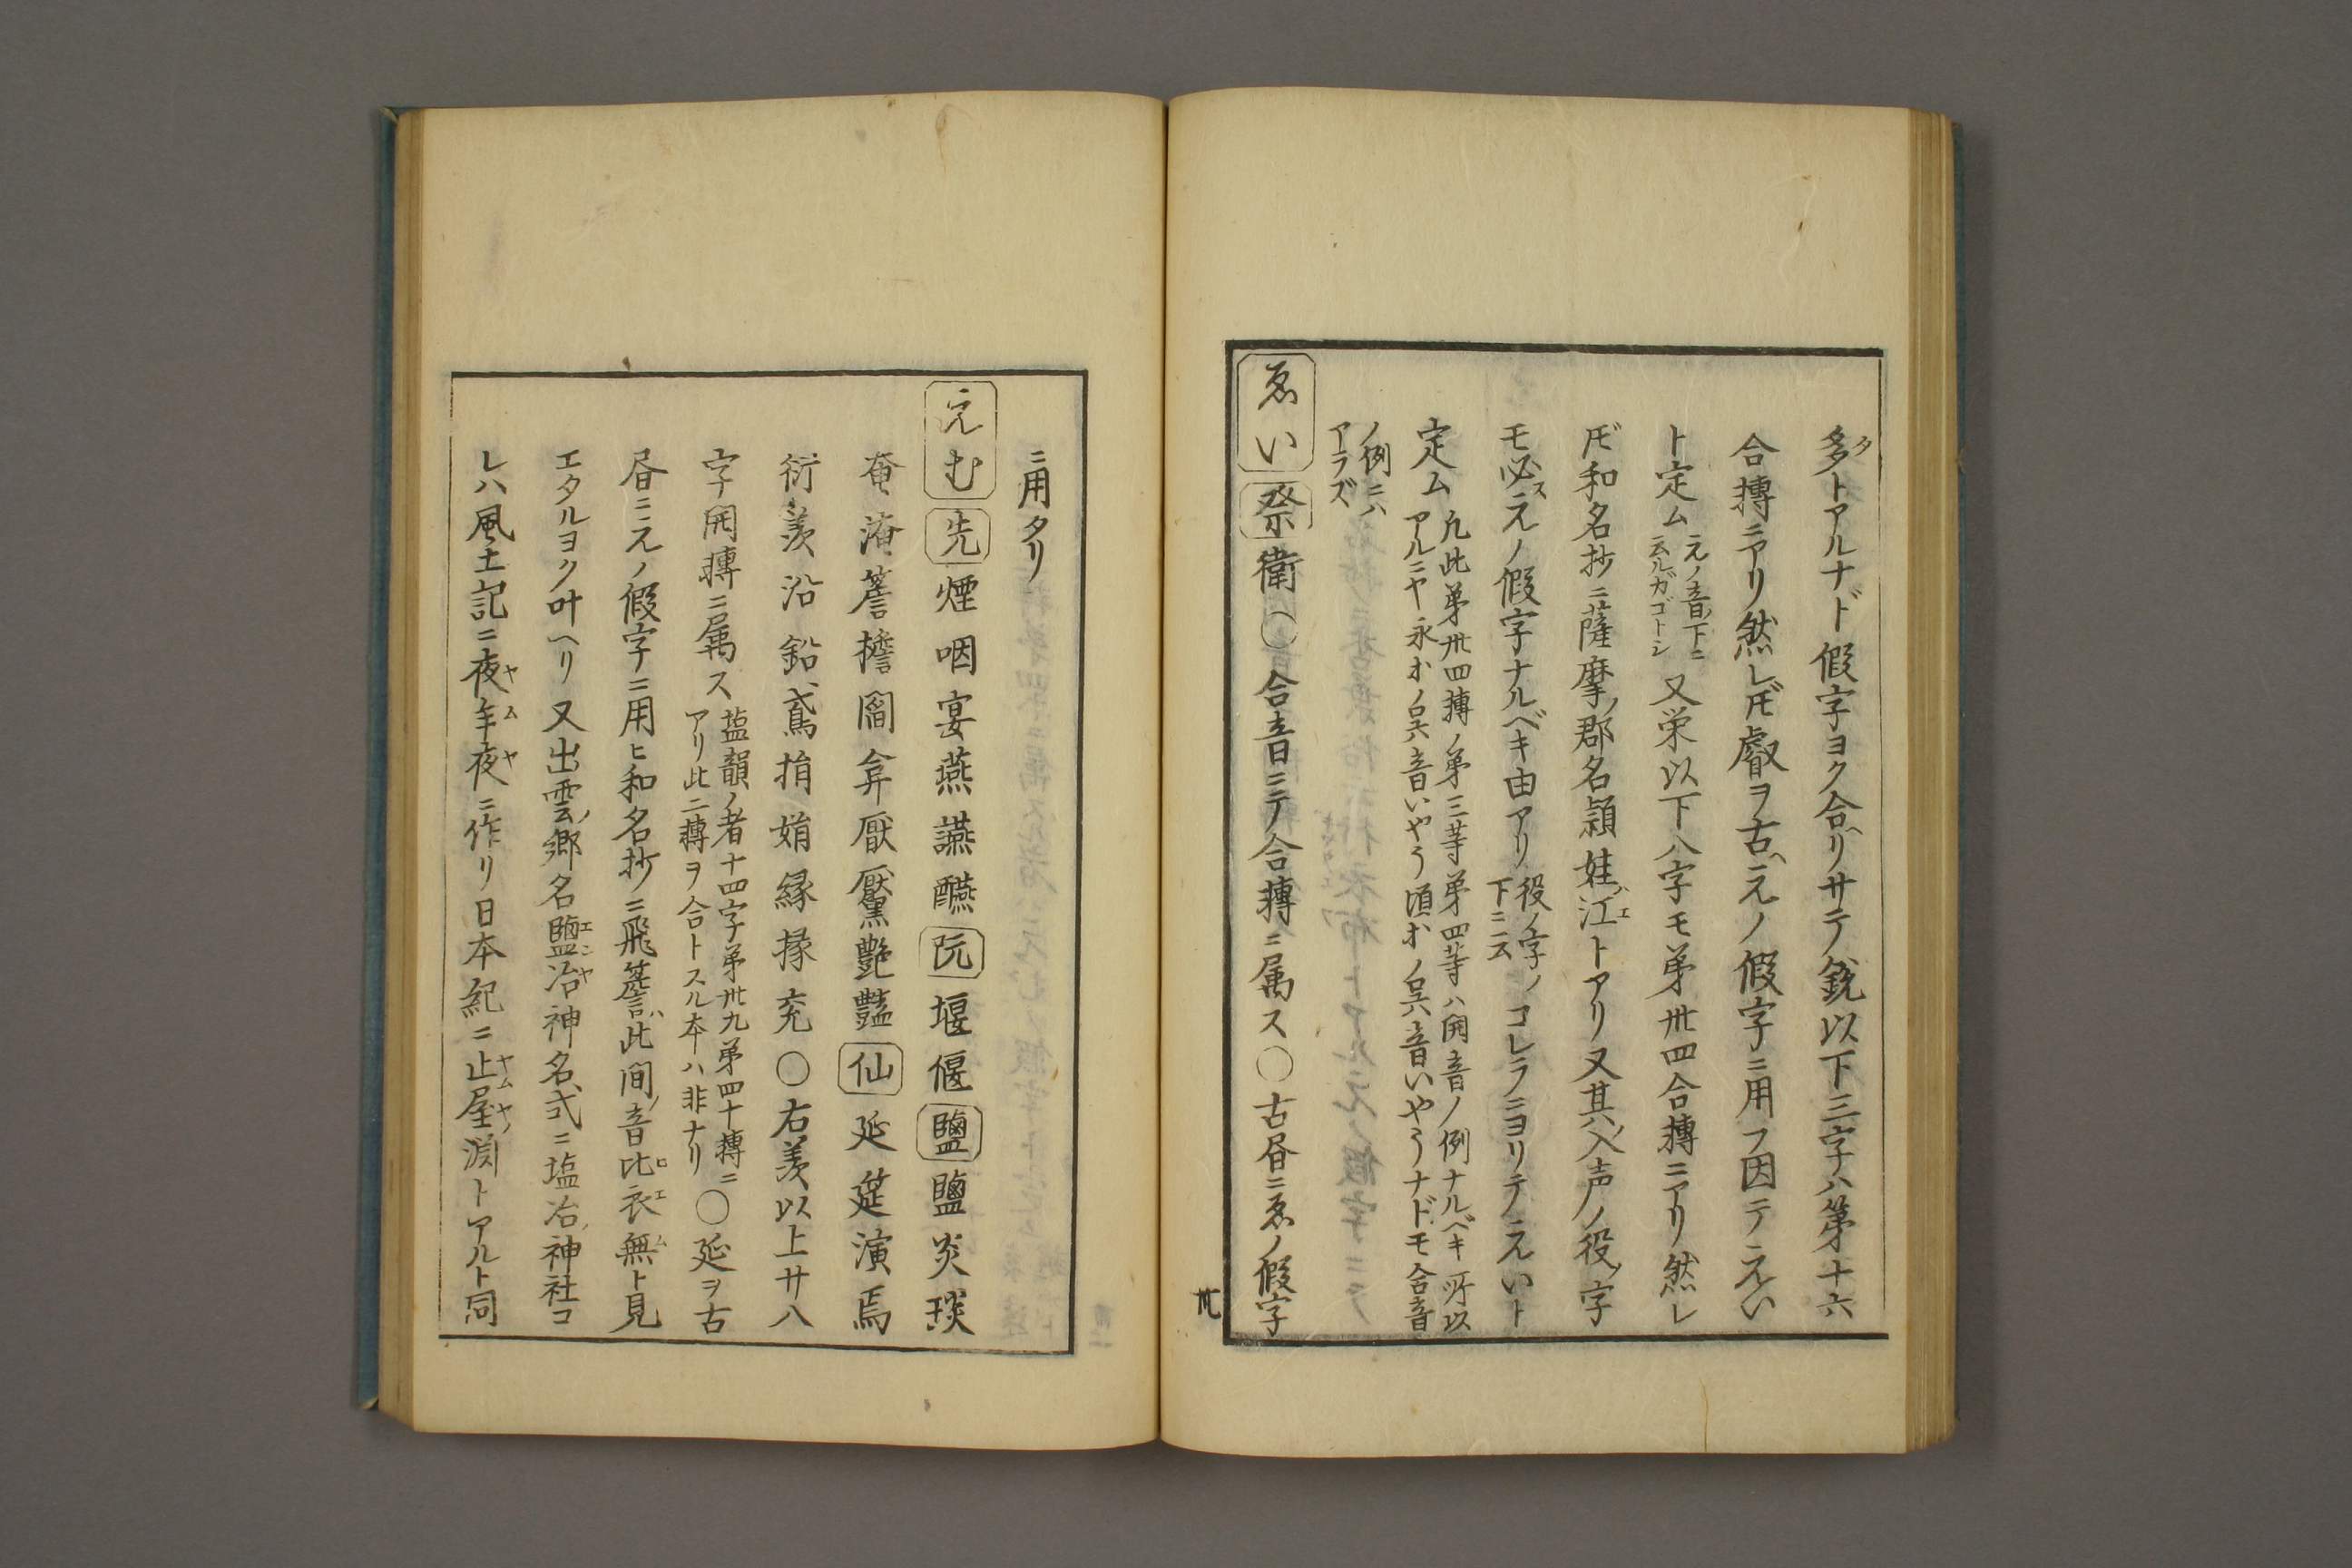 多トアルナド假字ヨク合ヘリサテ銳以下三字ハ第十六
合轉ニアリ然レ𪜈叡ヲ古ヘえノ假字ニ用フ因テえい
ト定ム えノ音下ニ云ルガゴトシ 又栄以下八字モ第卅四合轉ニアリ然レ
𪜈和名抄ニ薩摩ノ郡名頴娃ハ江トアリ又其入声ノ役ノ字
モ必えノ假字ナルベキ由アリ 役ノ字ノ下ニ云 コレラニヨリテえいト
定ム 凡此第卅四轉ノ第三等第四等ハ開音ノ例ナルベキ所以アルニヤ永オノ呉音いやう頃オノ呉音いやうナドモ合音
ノ例ニハアラズ
ゑい 祭 衛 ○合音ニテ合轉ニ属ス○古昼ニゑノ假字
ニ用タリ
えむ 先 煙咽宴燕讌醼 阮 堰偃 鹽 鹽炎琰
奄淹簷檐閻弇厭黶艶豔 仙 延筵演焉
衍羨沿鉛鳶捐娟縁掾兖○右羨以上廿八
字開轉ニ属ス 塩韻ノ者十四字第卅九第四十轉ニアリ此二轉ヲ合トスル本ハ非ナリ ○延ヲ古
昼ニえノ假字ニ用ヒ和名抄ニ飛簷ハ此間ノ音比衣無ト見
エタルヨク叶ヘリ又出雲ノ郷名鹽冶神名式ニ塩冶ノ神社コ
レハ風土記ニ夜牟夜ニ作リ日本紀ニ止屋ノ淵トアルト同